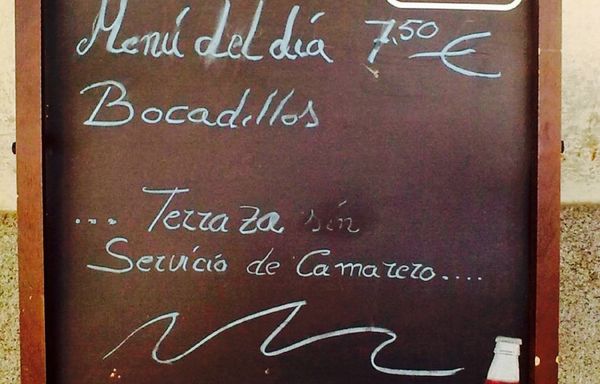 Menú del día 7,50 €
Bocadillos
... Terraza sin
Servicio de Camarero....